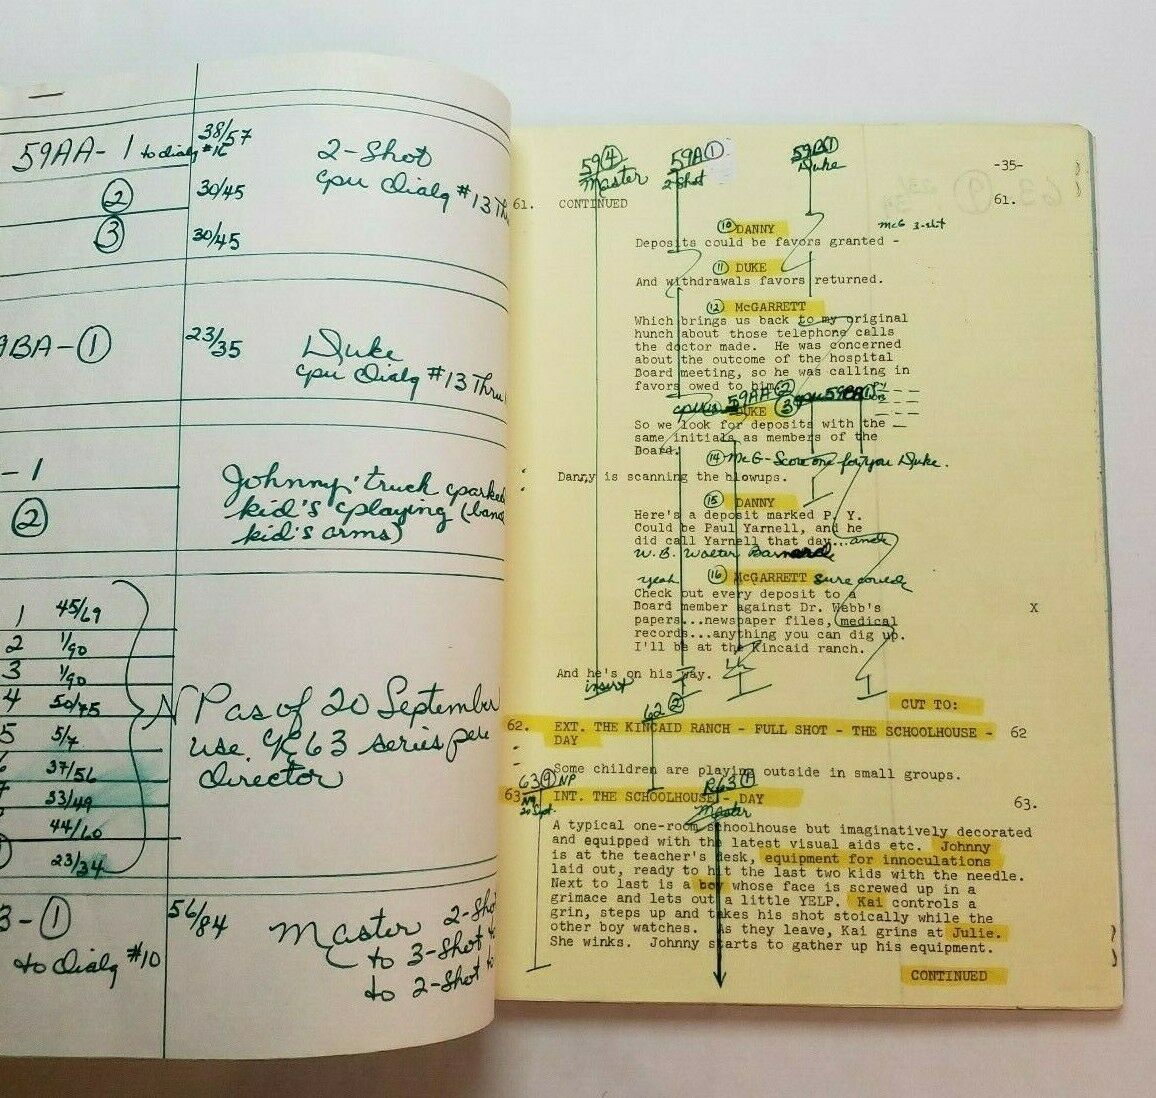 59AA-1 to dialg #16
38/57
2-Shot
②
30/45
cpu dialg #13 Thr
③
30/45
9BA-①
23/35
Duke
cpu Dialg #13 Thru
-1
Johnny' truck parked
②
kid's playing (band
kid's arms)
1 45/69
2 1/90
3 1/90
4 50/75
N Pas of 20 September
5 5/7
use R63 series per
37/56
director
33/49
44/60
23/34
3-①
56/84
Master 2-Shot
to 3-Shot
to Dialg #10
to 2-Shot
59④
Master
59A①
2-Shot
59B①
Duke
-35-
61. CONTINUED 61.
⑩ DANNY
McG 3-shot
Deposits could be favors granted -
⑪ DUKE
And withdrawals favors returned.
⑫ McGARRETT
Which brings us back to my original
hunch about those telephone calls
the doctor made. He was concerned
about the outcome of the hospital
Board meeting, so he was calling in
favors owed to him.
59AA② ③
cpu 59BA①
DUKE
So we look for deposits with the
same initials as members of the
Board.
⑭ McG - Score one for you Duke.
Danny is scanning the blowups.
⑮ DANNY
Here's a deposit marked P. Y.
Could be Paul Yarnell, and he
did call Yarnell that day...and
W.B. Walter Barnard
yeah ⑯ McGARRETT sure could
Check out every deposit to a
Board member against Dr. Webb's X
papers...newspaper files, medical
records...anything you can dig up.
I'll be at the Kincaid ranch.
And he's on his way.
insert
62②
CUT TO:
62. EXT. THE KINCAID RANCH - FULL SHOT - THE SCHOOLHOUSE - 62
DAY
Some children are playing outside in small groups.
63⑨ NP
R63①
63. INT. THE SCHOOLHOUSE - DAY 63.
20 Sept.
Master
A typical one-room schoolhouse but imaginatively decorated
and equipped with the latest visual aids etc. Johnny
is at the teacher's desk, equipment for innoculations
laid out, ready to hit the last two kids with the needle.
Next to last is a boy whose face is screwed up in a
grimace and lets out a little YELP. Kai controls a
grin, steps up and takes his shot stoically while the
other boy watches. As they leave, Kai grins at Julie.
She winks. Johnny starts to gather up his equipment.
CONTINUED